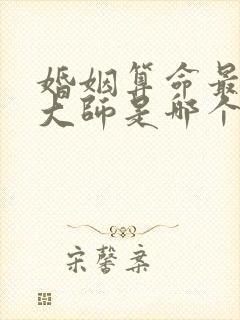 婚姻算命最
大师是哪个
宋馨案